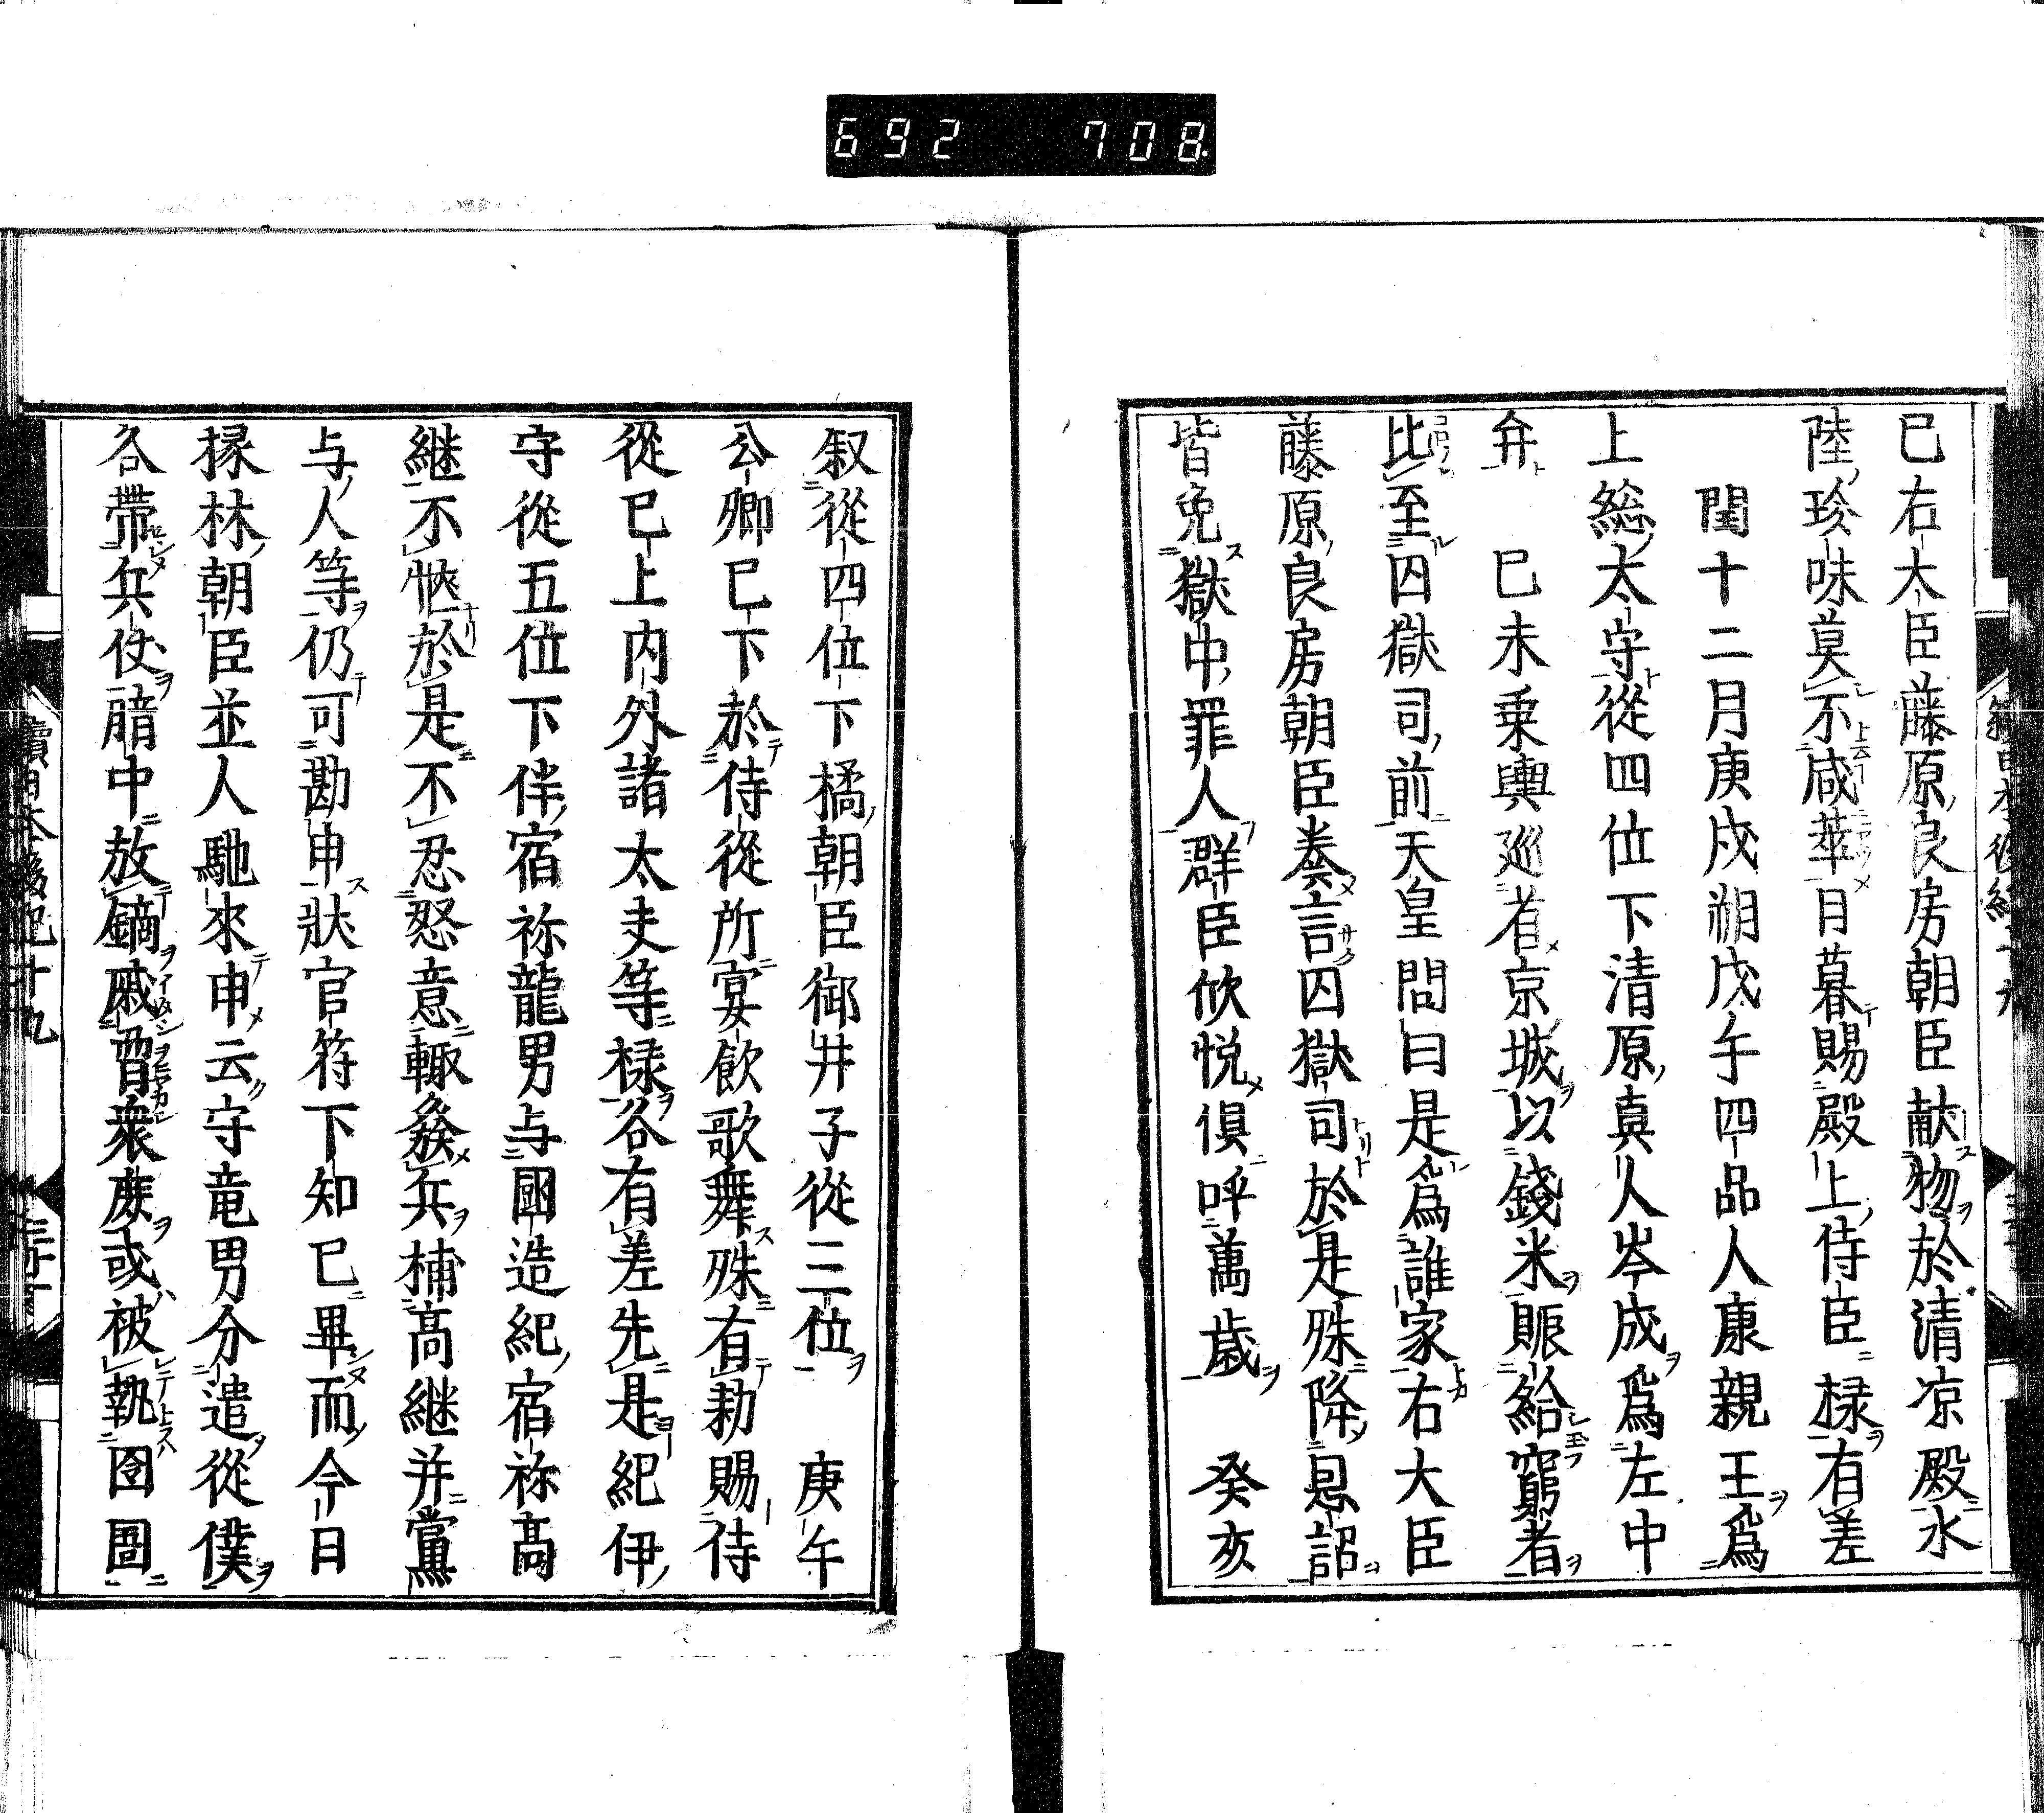 692 708.
已右大臣藤原良房朝臣献物於清凉殿水
陸珍味莫不咸萃日暮賜殿上侍臣禄有差
閏十二月庚戌朔戊午四品人康親王爲
上総太守從四位下清原真人岑成爲左中
弁 已未乗輿巡省京城以錢米賑給窮者
比至囚獄司前天皇問曰是爲誰家右大臣
藤原良房朝臣奏言囚獄司於是殊降恩詔
皆免獄中罪人群臣欣悦倶呼萬歳 癸亥
叙從四位下橘朝臣御井子從三位 庚午
公卿已下於侍從所宴飲歌舞殊有勅賜侍
從已上内外諸太夫等禄各有差先是紀伊
守從五位下伴宿祢龍男与國造紀宿祢髙
継不愜於是不忍怒意輙發兵捕髙継并黨
与人等仍可勘申状官符下知已畢而今日
掾林朝臣並人馳來申云守竜男分遣從僕
各帶兵仗暗中放鏑威脅衆庶或被執囹圄
續日本後紀十九